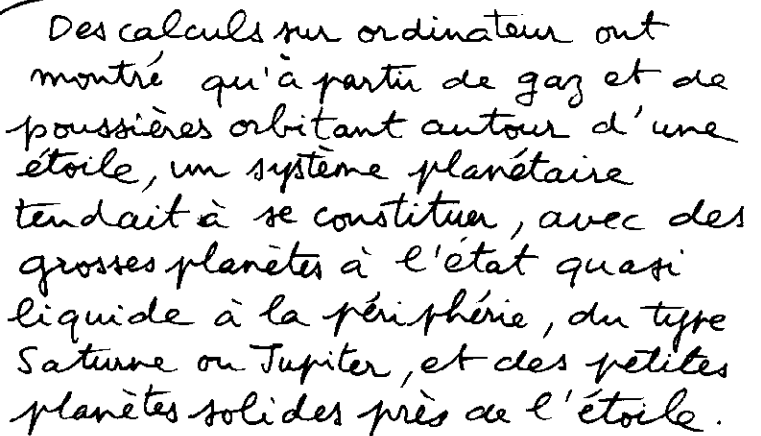 Des calculs sur ordinateur ont
montré qu'à partir de gaz et de
poussières orbitant autour d'une
étoile, un système planétaire
tendait à se constituer, avec des
grosses planètes à l'état quasi
liquide à la périphérie, du type
Saturne ou Jupiter, et des petites
planètes solides près de l'étoile.